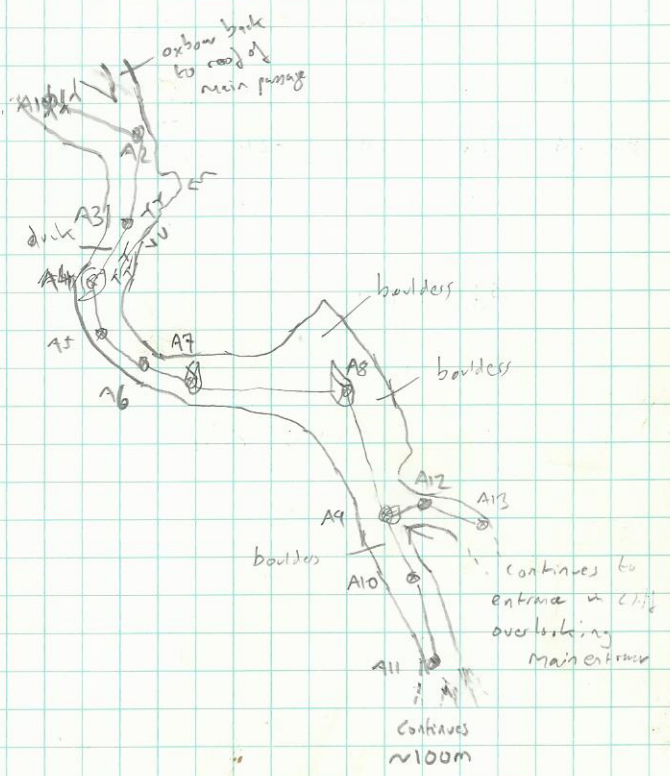 oxbow back
to roof of
main passage
A2
A3
duck
A4
A5
A6
A7
boulders
boulders
A8
A9
A12
A13
boulders
A10
A11
continues to
entrance in cliff
overlooking
main entrance
continues
~100m